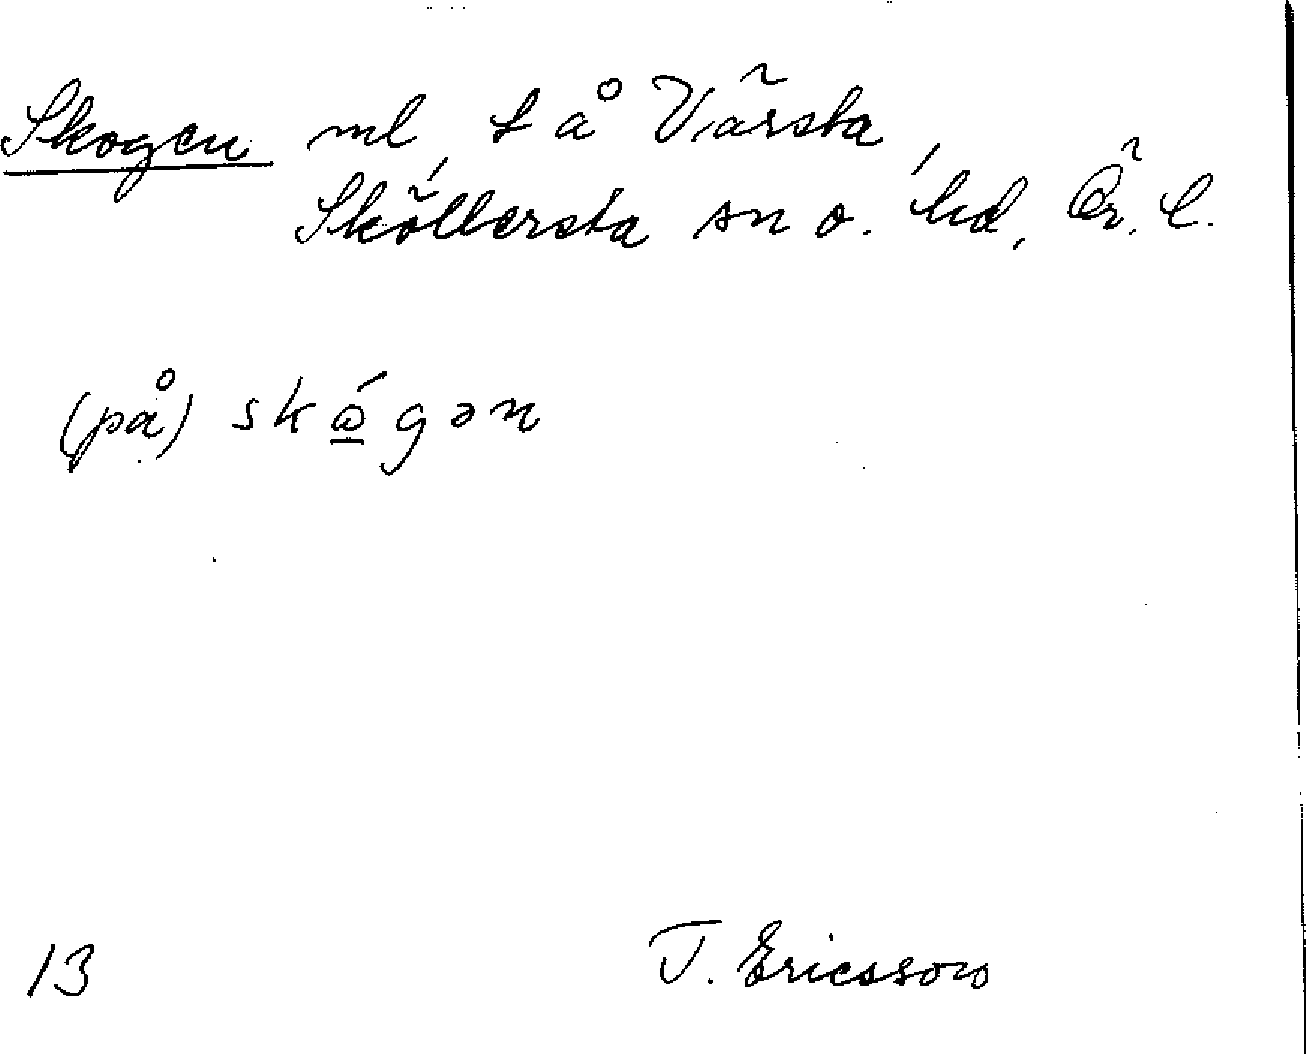 Skogen ml, t å Värsta,
Sköllersta sn o. hd, Ör. l.
(på) skógən
13 T. Ericsson